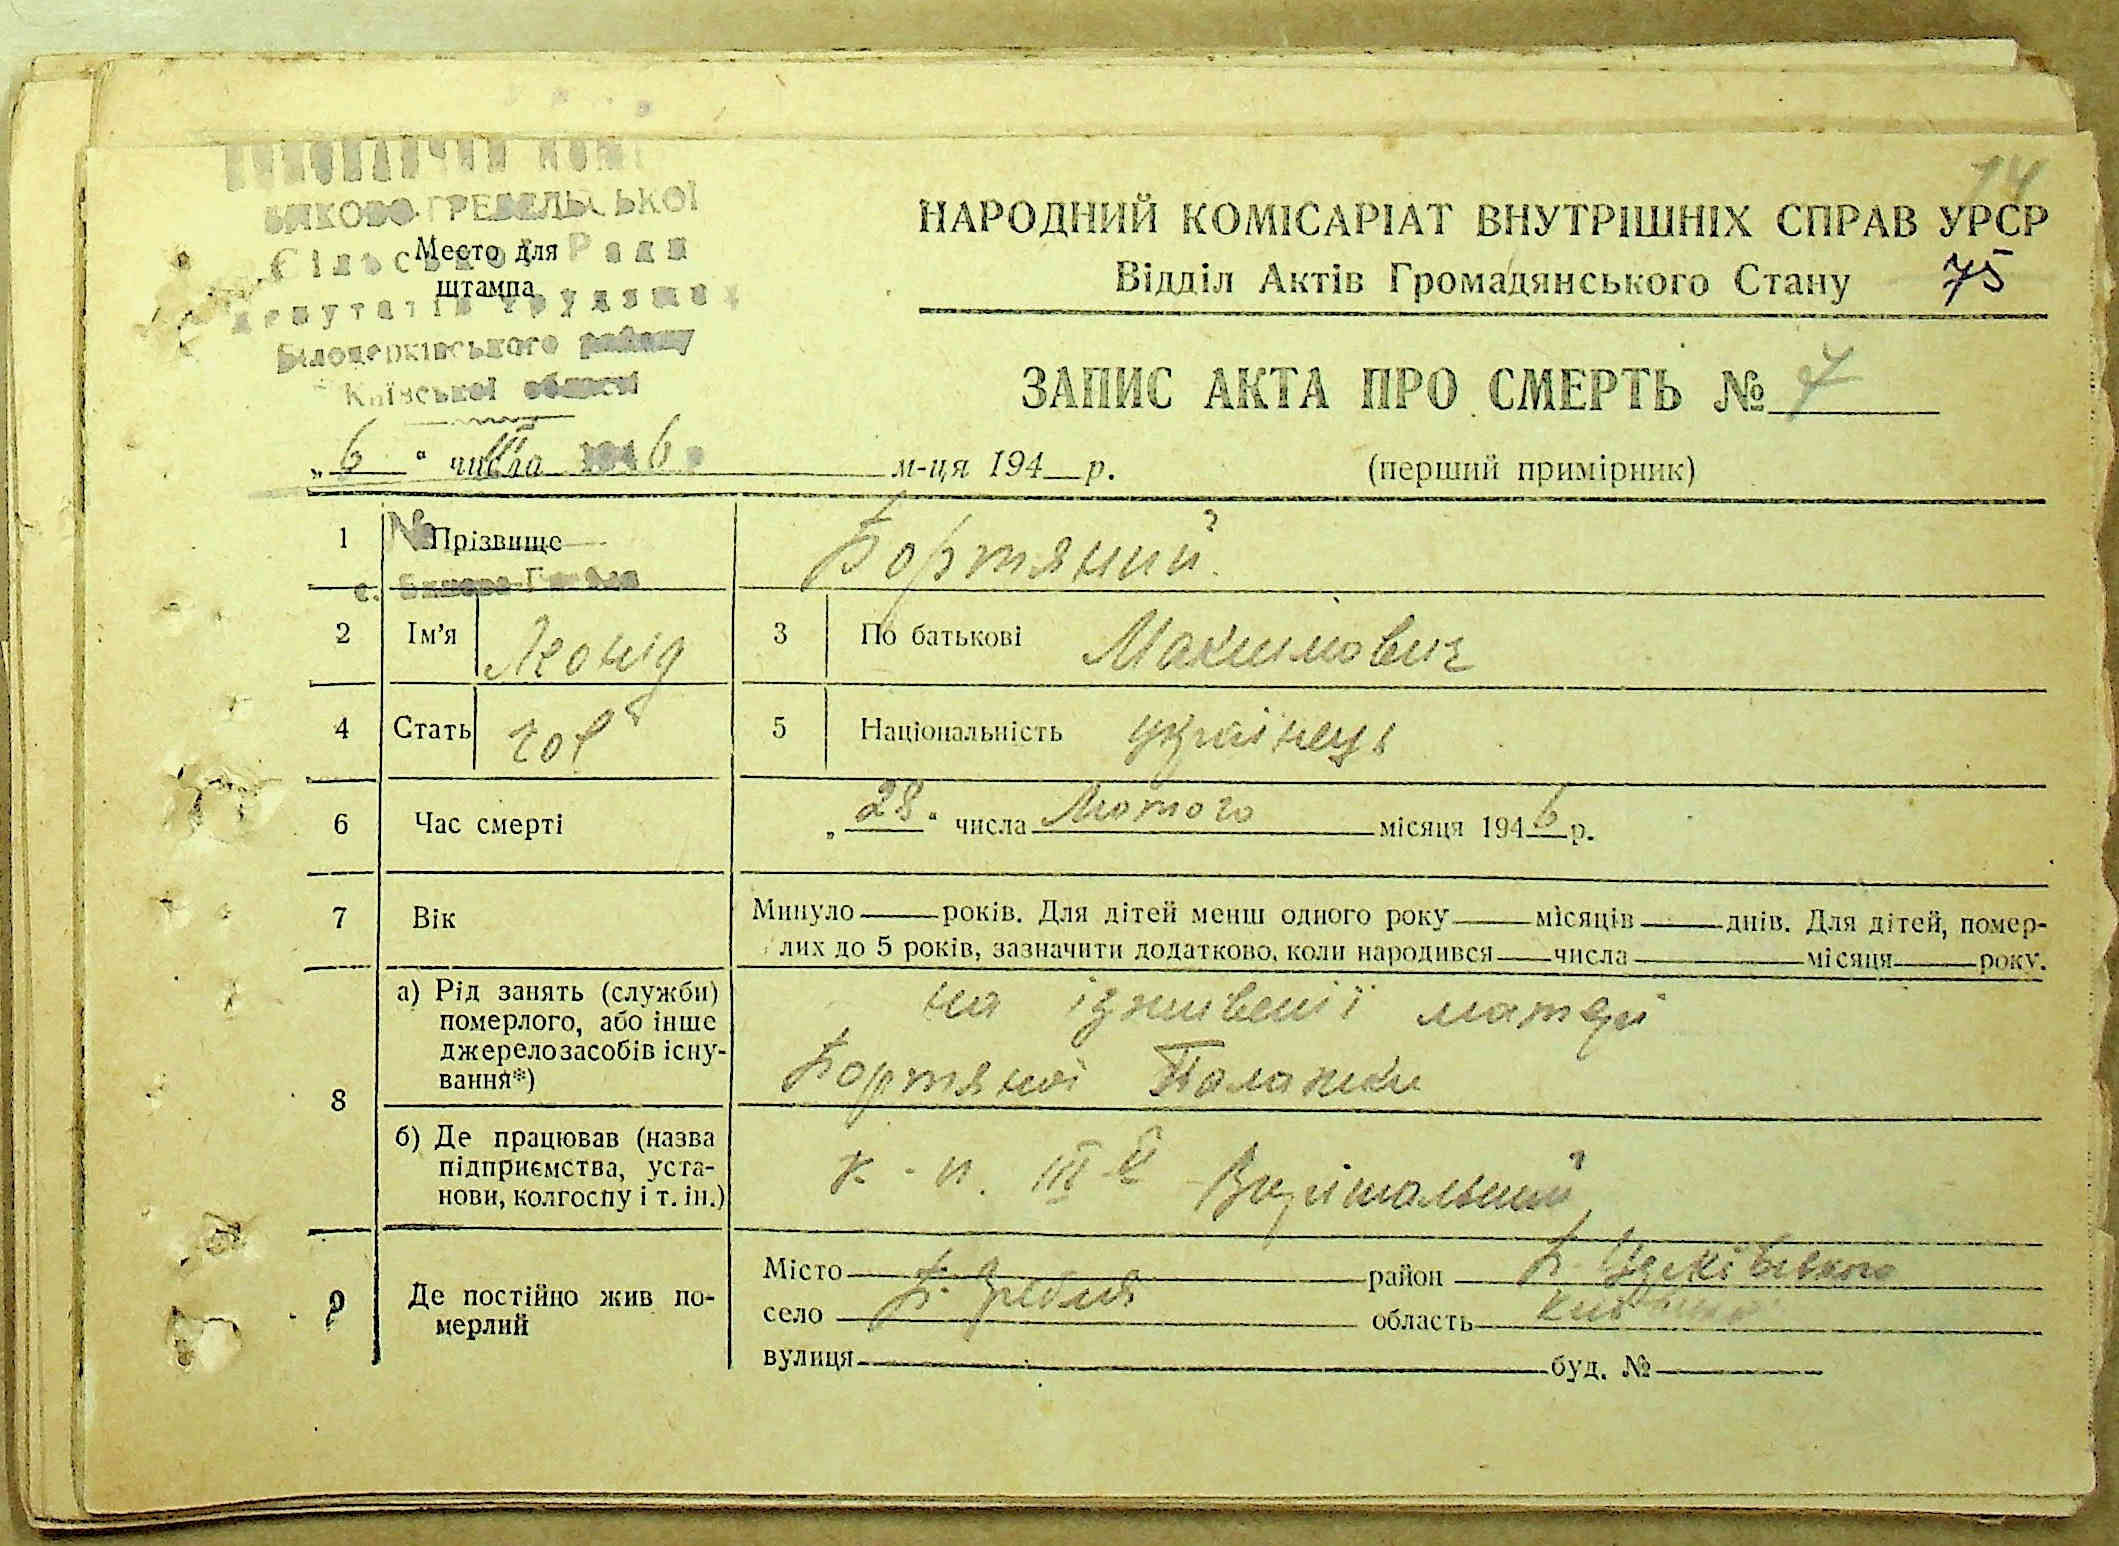 14
НАРОДНИЙ КОМІСАРІАТ ВНУТРІШНІХ СПРАВ УРСР
Відділ Актів Громадянського Стану 75
БИКОВО-ГРЕБЕЛЬСЬКОЇ
Сільської Ради
депутатів трудящих
Білоцерківського району
Київської області
Место для
штампа
ЗАПИС АКТА ПРО СМЕРТЬ № 7
„6“ числа III 1946 р м-ця 194 р.
(перший примірник)
№
1 Прізвище Бортяний
с. Бикова-Гребля
2 Ім’я Леонид 3 По батькові Макимович
4 Стать чол 5 Національність українець
6 Час смерті „28“ числа Лютого місяця 1946 р.
7 Вік Минуло років. Для дітей менш одного року місяців днів. Для дітей, помер-
лих до 5 років, зазначити додатково, коли народився числа місяця року.
8 а) Рід занять (служби)
померлого, або інше
джерело засобів існу-
вання*)
на іждивенії матері
Бортяної Палажки
б) Де працював (назва
підприємства, уста-
нови, колгоспу і т. ін.)
к-п. III й Вирішальний
9 Де постійно жив по-
мерлий
Місто район Б-Церківського
село Б. Гребля область Київська
вулиця буд. №